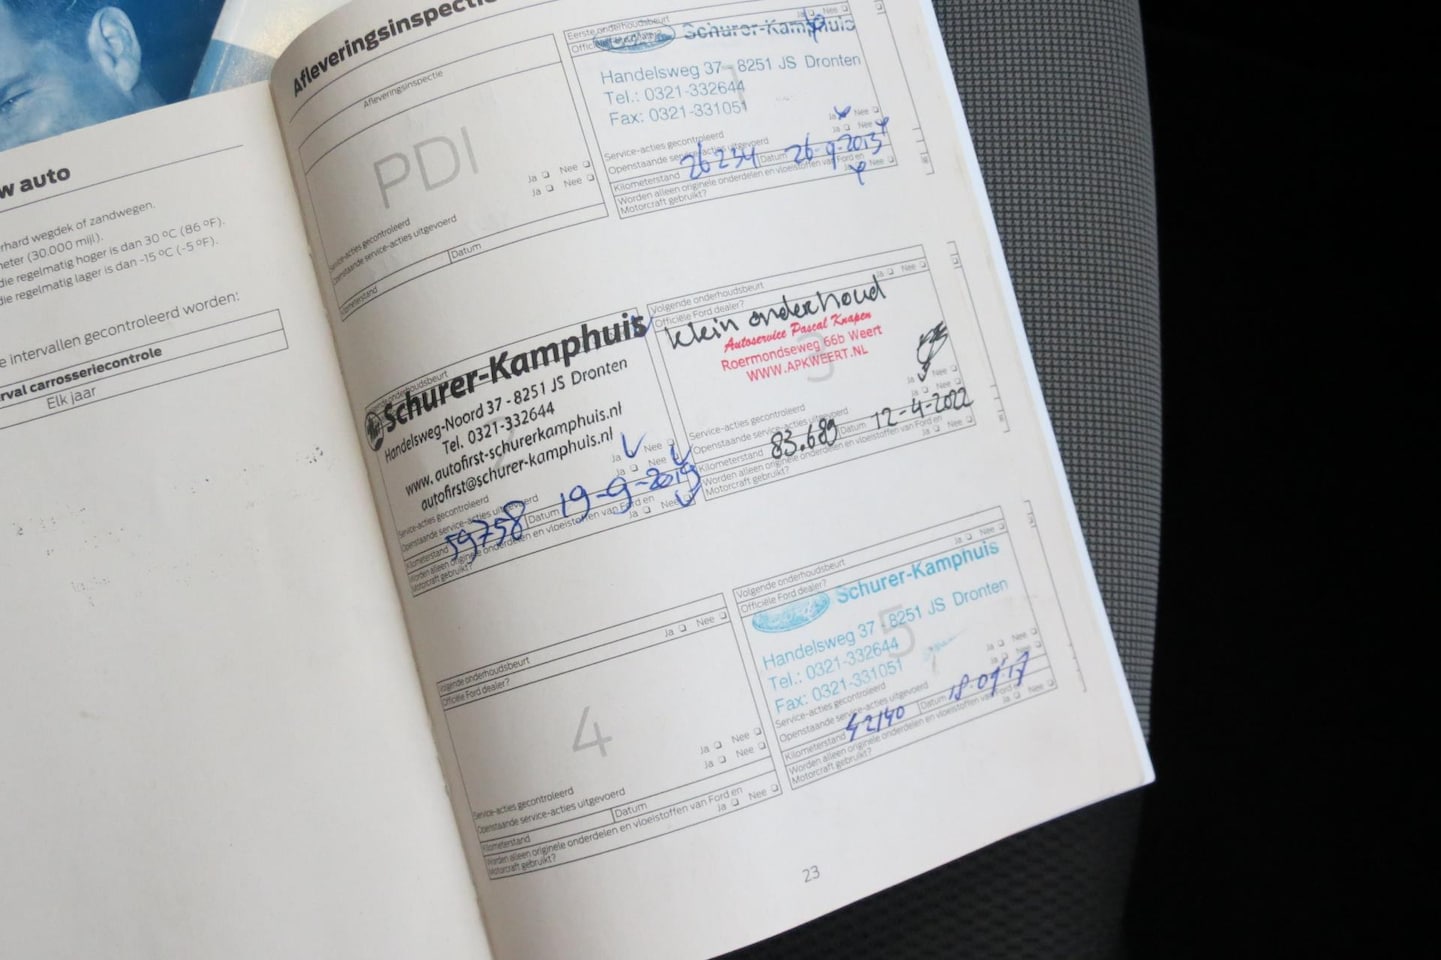 w auto
rhard wegdek of zandwegen.
neter (30.000 mijl).
die regelmatig hoger is dan 30 °C (86 °F).
die regelmatig lager is dan -15 °C (-5 °F).
e intervallen gecontroleerd worden:
rval carrosseriecontrole
Elk jaar
Afleveringsinspectie
Afleveringsinspectie
PDI
Ja Nee
Ja Nee
Service-acties gecontroleerd
Openstaande service-acties uitgevoerd
Kilometerstand Datum
Eerste onderhoudsbeurt
Ja Nee
Schurer-Kamphuis
Handelsweg 37 - 8251 JS Dronten
Tel.: 0321-332644
Fax: 0321-331051
1
Ja Nee
Ja Nee
Service-acties gecontroleerd
Openstaande service-acties uitgevoerd
Kilometerstand 26234 Datum 26-9-2013
Worden alleen originele onderdelen en vloeistoffen van Ford en
Motorcraft gebruikt? Ja Nee
onderhoudsbeurt
Schurer-Kamphuis
Handelsweg-Noord 37 - 8251 JS Dronten
Tel. 0321-332644
www. autofirst-schurerkamphuis.nl
autofirst@schurer-kamphuis.nl
Ja Nee
Ja Nee
Service-acties gecontroleerd
Openstaande service-acties uitgevoerd
Kilometerstand 59758 Datum 19-9-2019
Worden alleen originele onderdelen en vloeistoffen van Ford en
Motorcraft gebruikt? Ja Nee
Volgende onderhoudsbeurt
Officiële Ford dealer? Ja Nee
klein onderhoud
Autoservice Pascal Knapen
Roermondseweg 66b Weert
WWW.APKWEERT.NL
3
Ja Nee
Ja Nee
Service-acties gecontroleerd
Openstaande service-acties uitgevoerd
Kilometerstand 83.689 Datum 12-4-2022
Worden alleen originele onderdelen en vloeistoffen van Ford en
Motorcraft gebruikt? Ja Nee
Volgende onderhoudsbeurt
Officiële Ford dealer? Ja Nee
4
Ja Nee
Ja Nee
Service-acties gecontroleerd
Openstaande service-acties uitgevoerd
Kilometerstand Datum
Worden alleen originele onderdelen en vloeistoffen van Ford en
Motorcraft gebruikt? Ja Nee
Volgende onderhoudsbeurt
Officiële Ford dealer?
Schurer-Kamphuis
Handelsweg 37 - 8251 JS Dronten
Tel.: 0321-332644
Fax: 0321-331051
5
Ja Nee
Ja Nee
Service-acties gecontroleerd
Openstaande service-acties uitgevoerd
Kilometerstand 42140 Datum 18-09-17
Worden alleen originele onderdelen en vloeistoffen van Ford en
Motorcraft gebruikt? Ja Nee
23